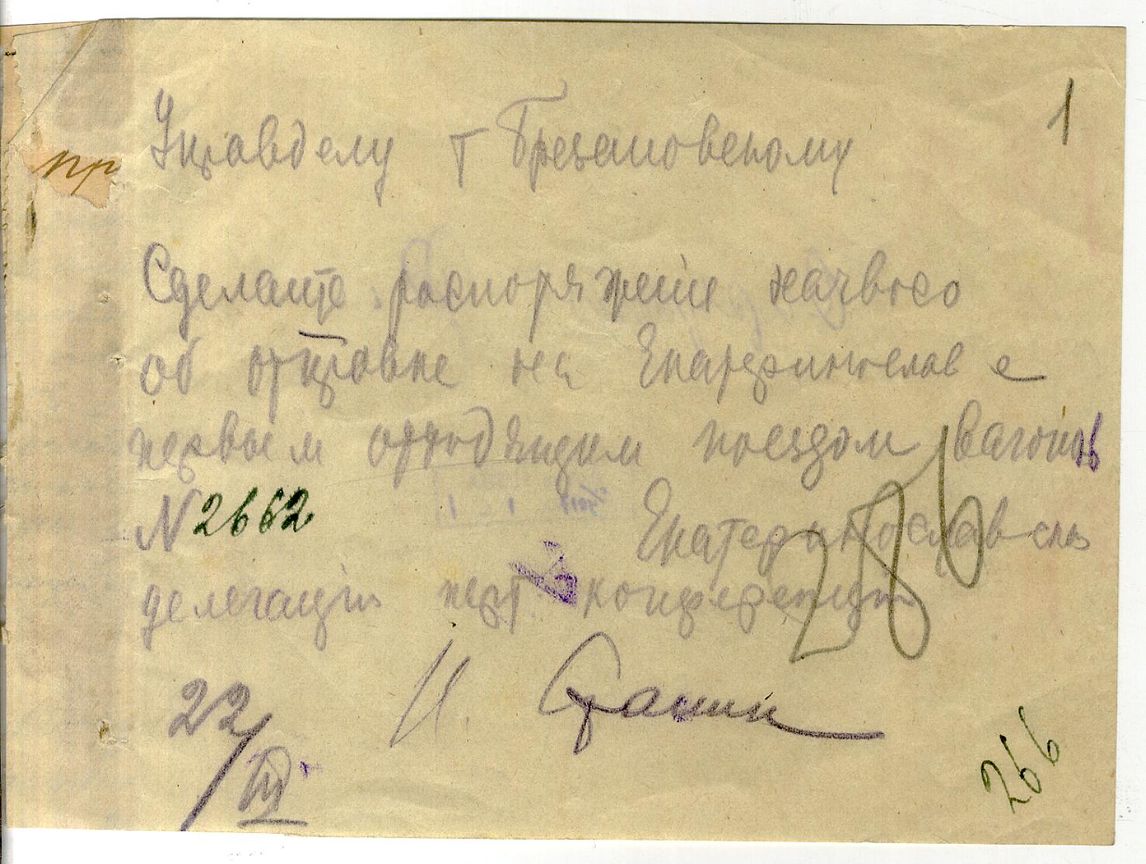 1
пр
Управделу т Брезановскому
Сделайте распоряжение начвосо
об отправке на Екатеринослав с
первым отходящим поездом вагонов
N 2662 Екатеринославской
делегации парт конференции
И. Сталин
22/III
286
266